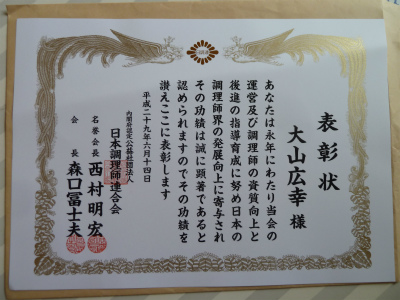 表彰状
大山広幸 様
あなたは永年にわたり当会の
運営及び調理師の資質向上と
後進の指導育成に努め日本の
調理師界の発展向上に寄与され
その功績は誠に顕著であると
認められますのでその功績を
讃えここに表彰します
平成二十九年六月十四日
内閣府認定 公益社団法人
日本調理師連合会
名誉会長 西村明宏
会長 森口冨士夫